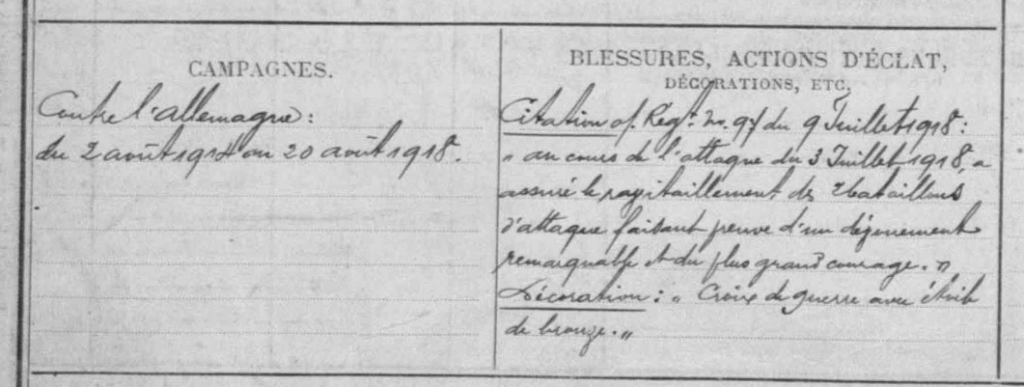 CAMPAGNES.
Contre l'allemagne :
du 2 août 1914 au 20 août 1918.
BLESSURES, ACTIONS D'ÉCLAT,
DÉCORATIONS, ETC.
Citation of. Regt. No. 97 du 9 Juillet 1918 :
" au cours de l'attaque du 3 Juillet 1918, a
assuré le ravitaillement des bataillons
d'attaque faisant preuve d'un dévouement
remarquable et du plus grand courage. "
Décoration : " Croix de guerre avec étoile
de bronze. "